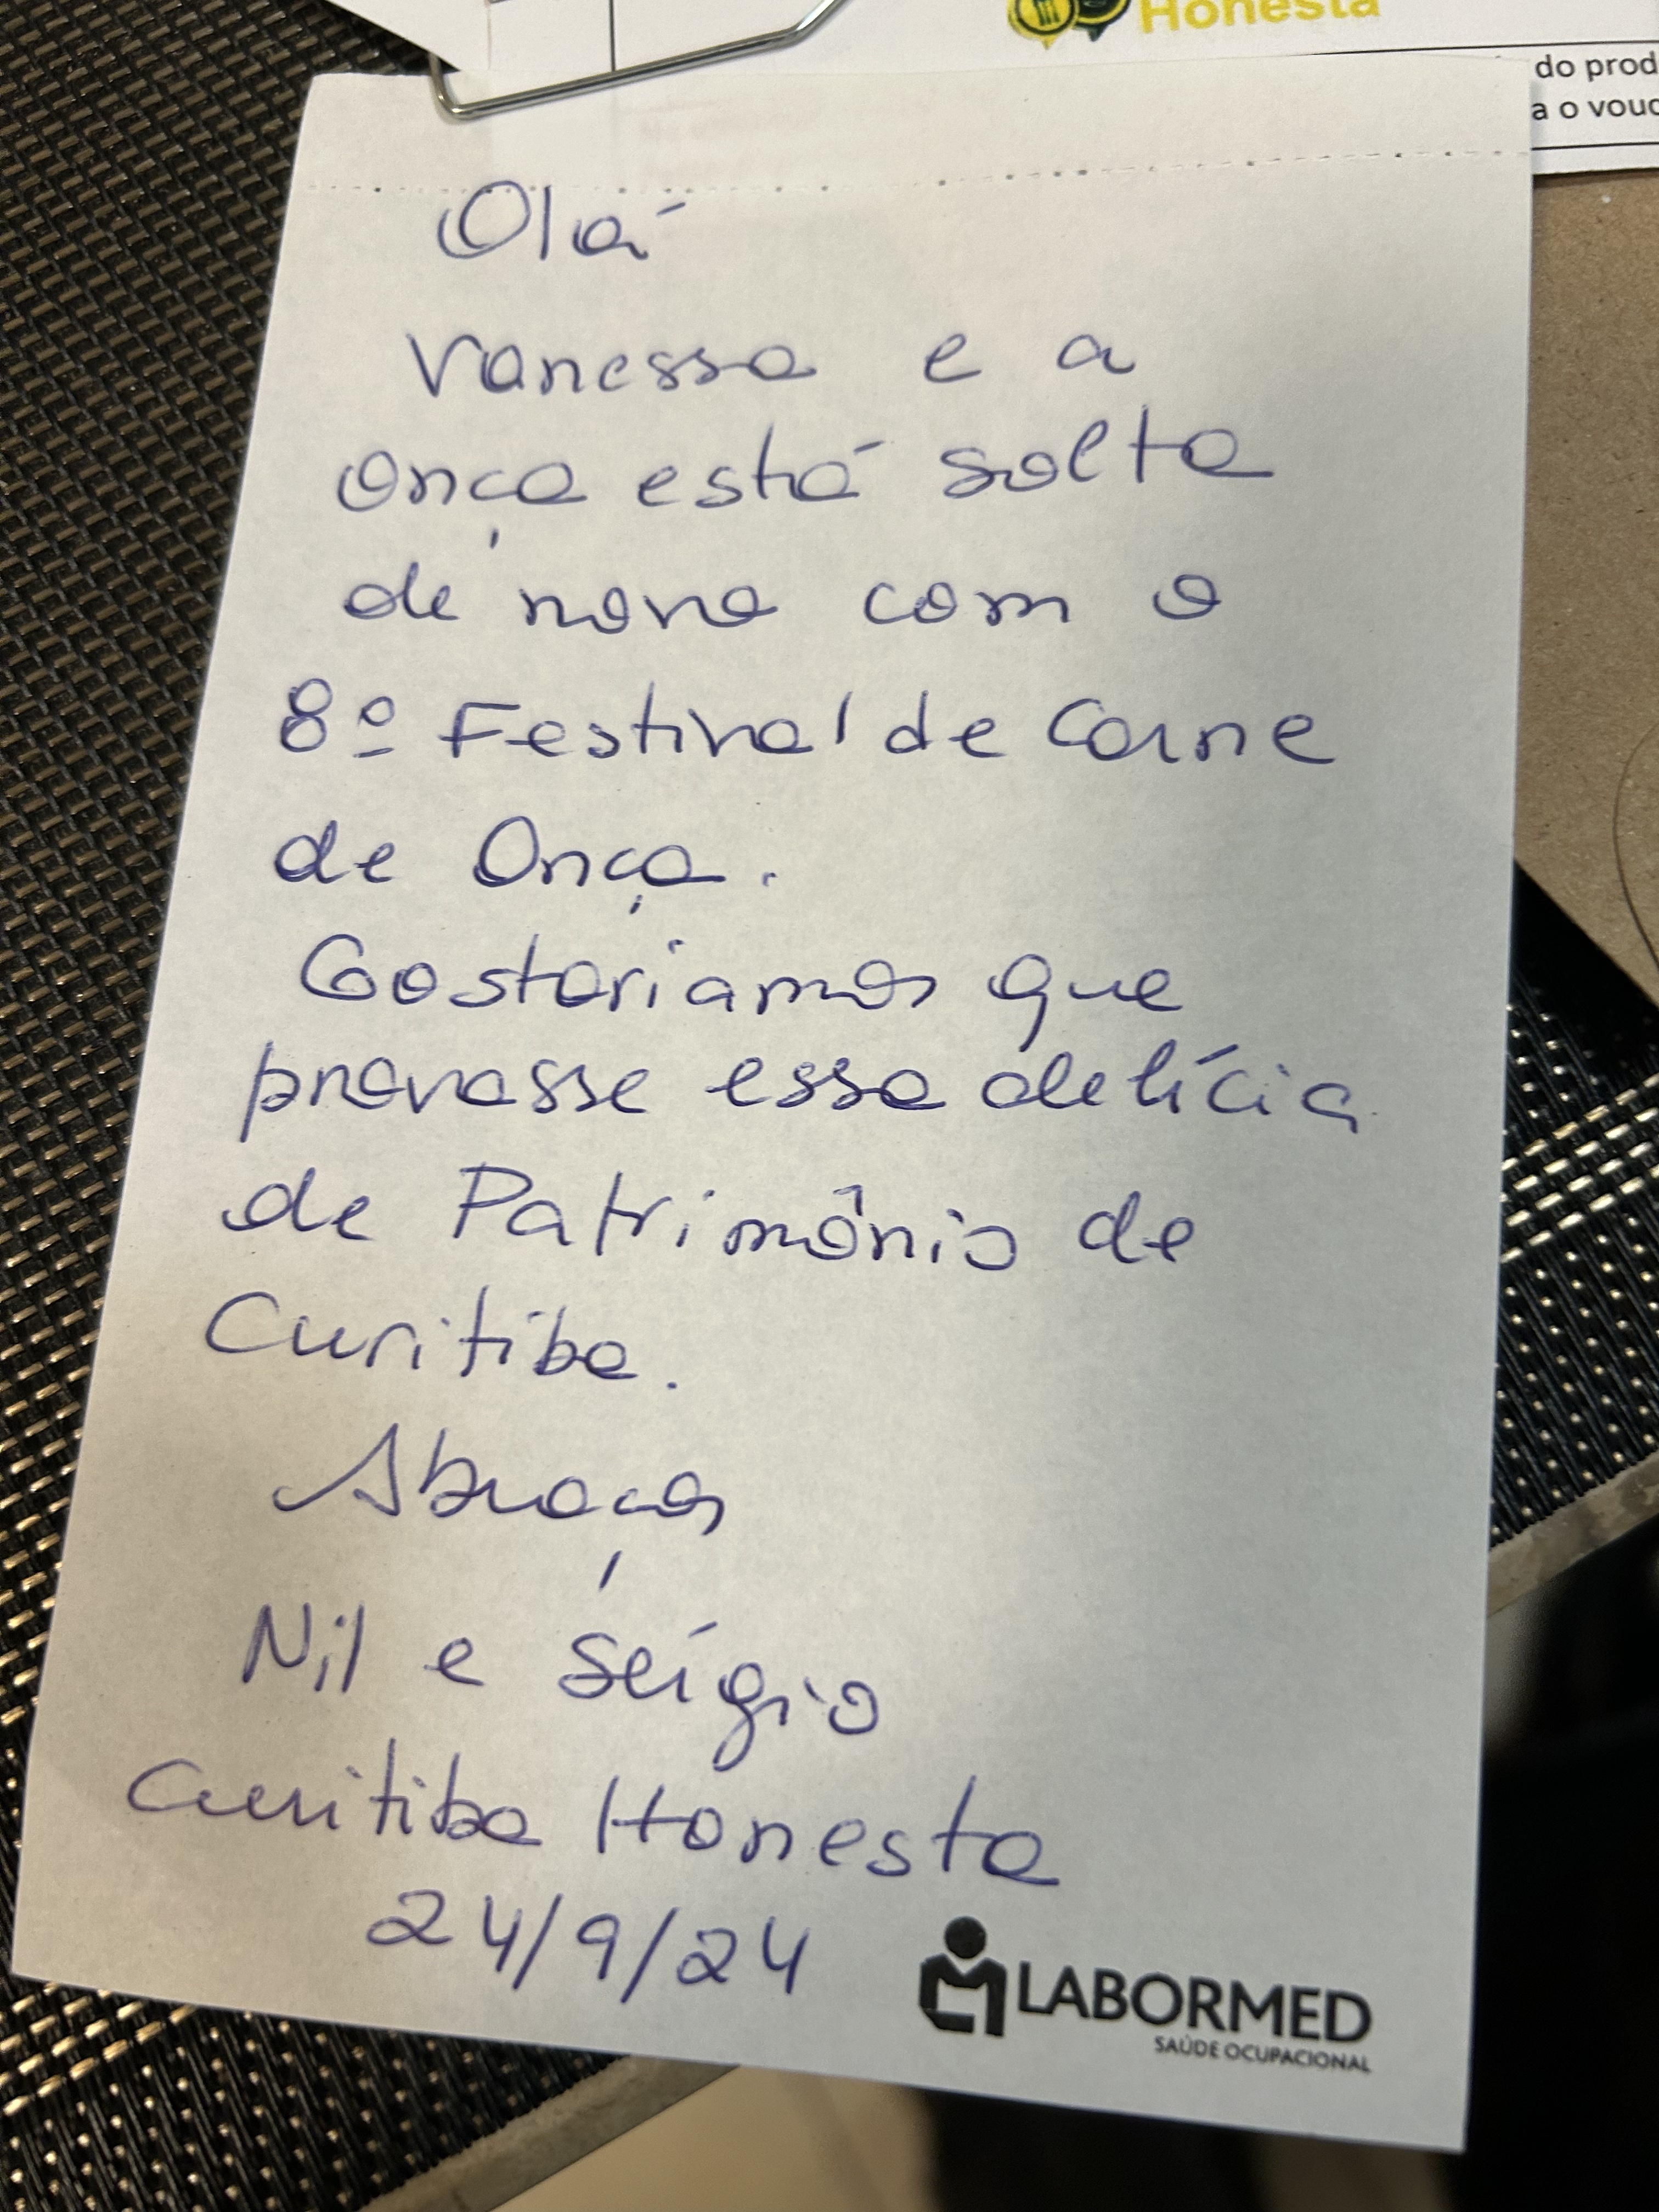 Honesta
do prod
a o vouc
Olá
Vanessa e a
onça está solta
de novo com o
8º Festival de Carne
de Onça.
Gostaríamos que
provasse essa delícia
de Patrimônio de
Curitiba.
Abraços
Nil e Sérgio
Curitiba Honesta
24/9/24
LABORMED
SAÚDE OCUPACIONAL